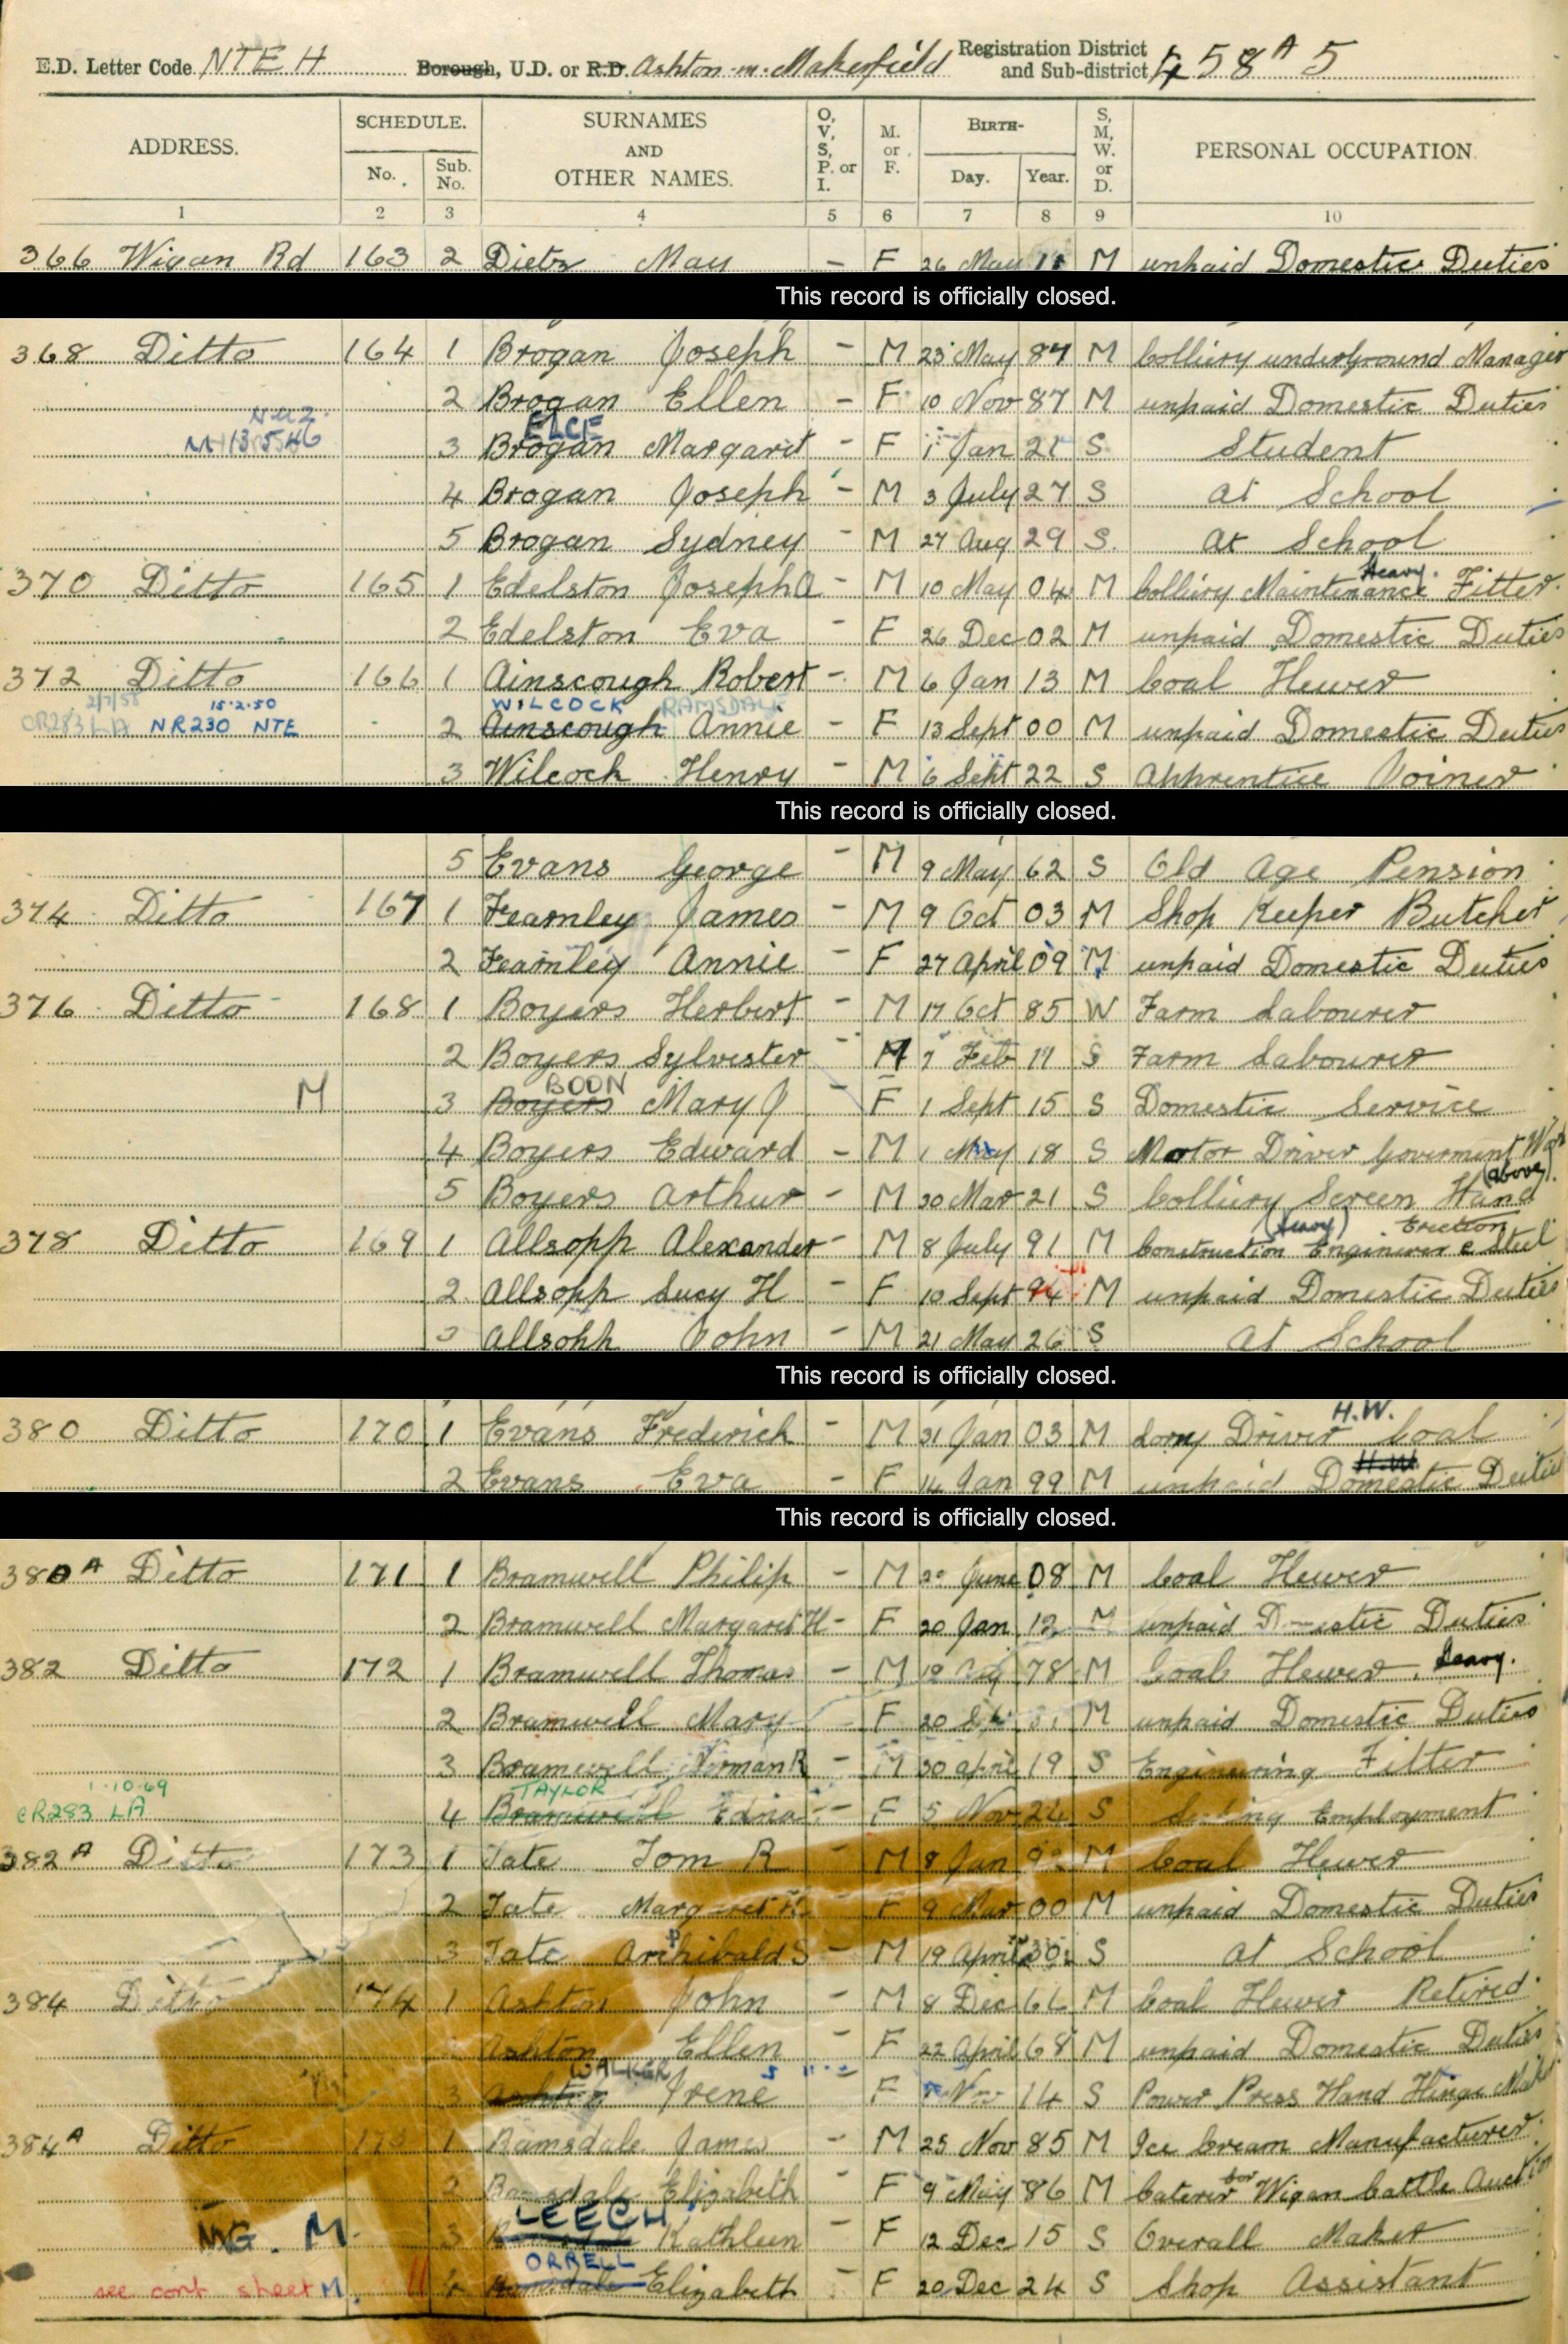 E.D. Letter Code NTEH Borough, U.D. or R.D. Ashton-in-Makerfield Registration District and Sub-district 458A 5
ADDRESS. SCHEDULE. No. Sub. No. SURNAMES AND OTHER NAMES. O, V, S, P. or I. M. or F. BIRTH- Day. Year. S, M, W. or D. PERSONAL OCCUPATION.
1 2 3 4 5 6 7 8 9 10
366 Wigan Rd 163 2 May - F 26 May 11 M unpaid Domestic Duties
This record is officially closed.
368 Ditto 164 1 Brogan Joseph - M 23 May 84 M Colliery underground Manager
2 Brogan Ellen - F 10 Nov 87 M unpaid Domestic Duties
ELCE
3 Brogan Margaret - F 1 Jan 21 S Student
4 Brogan Joseph - M 3 July 27 S at School
5 Brogan Sydney - M 27 Aug 29 S at School
Heavy.
370 Ditto 165 1 Edelston Joseph A - M 10 May 04 M Colliery Maintenance Fitter
2 Edelston Eva - F 26 Dec 02 M unpaid Domestic Duties
372 Ditto 166 1 Ainscough Robert - M 6 Jan 13 M Coal Hewer
15.2.50 WILCOCK RAMSDALE
CR283 LA NR230 NTE 2 Ainscough Annie - F 13 Sept 00 M unpaid Domestic Duties
3 Wilcock Henry - M 6 Sept 22 S Apprentice Joiner
This record is officially closed.
5 Evans George - M 9 May 62 S Old Age Pension
374 Ditto 167 1 Fearnley James - M 9 Oct 03 M Shop Keeper Butcher
2 Fearnley Annie - F 27 April 09 M unpaid Domestic Duties
376 Ditto 168 1 Boyers Herbert - M 17 Oct 85 W Farm Labourer
2 Boyers Sylvester - M 7 Feb 11 S Farm Labourer
BOON
M 3 Boyers Mary J - F 1 Sept 15 S Domestic Service
4 Boyers Edward - M 1 May 18 S Motor Driver Goverment Work
(above)
5 Boyers Arthur - M 30 Mar 21 S Colliery Screen Hand
(Heavy) Erection
378 Ditto 169 1 Allsopp Alexander - M 8 July 91 M Construction Engineer Steel
2 Allsopp Lucy H - F 10 Sept 94 M unpaid Domestic Duties
3 Allsopp John - M 21 May 26 S at School
This record is officially closed.
H.W.
380 Ditto 170 1 Evans Frederick - M 31 Jan 03 M Lorry Driver Coal
H.W
2 Evans Eva - F 14 Jan 99 M unpaid Domestic Duties
This record is officially closed.
380A Ditto 171 1 Bramwell Philip - M 20 June 08 M Coal Hewer
2 Bramwell Margaret H - F 20 Jan 12 M unpaid Domestic Duties
382 Ditto 172 1 Bramwell Thomas - M 78 M Coal Hewer. Heavy.
2 Bramwell Mary - F 20 M unpaid Domestic Duties
3 Bramwell Norman R - M 30 April 19 S Engineering Fitter
1.10.69 TAYLOR
CR283 LA 4 Bramwell Edna - F 5 Nov 24 S Seeking Employment
382A Ditto 173 1 Tate Tom R - M 8 Jan M Coal Hewer
2 Tate Margaret - F 9 Mar 00 M unpaid Domestic Duties
3 Tate Archibald S - M 19 April 30 S at School
384 Ditto 174 1 Ashton John - M 8 Dec M Coal Hewer Retired
Ashton Ellen - F 22 April 68 M unpaid Domestic Duties
WALKER
3 Ashton Irene F Nov 14 S Power Press Hand Hinge
384A Ditto 175 1 Ramsdale James - M 25 Nov 85 M Ice Cream Manufacturer
for
2 Ramsdale Elizabeth - F 9 May 86 M Caterer Wigan Cattle Auction
LEECH
MG. M. 3 Ramsdale Kathleen - F 12 Dec 15 S Overall Maker
ORRELL
see cont sheet M. 4 Ramsdale Elizabeth F 20 Dec 24 S Shop Assistant